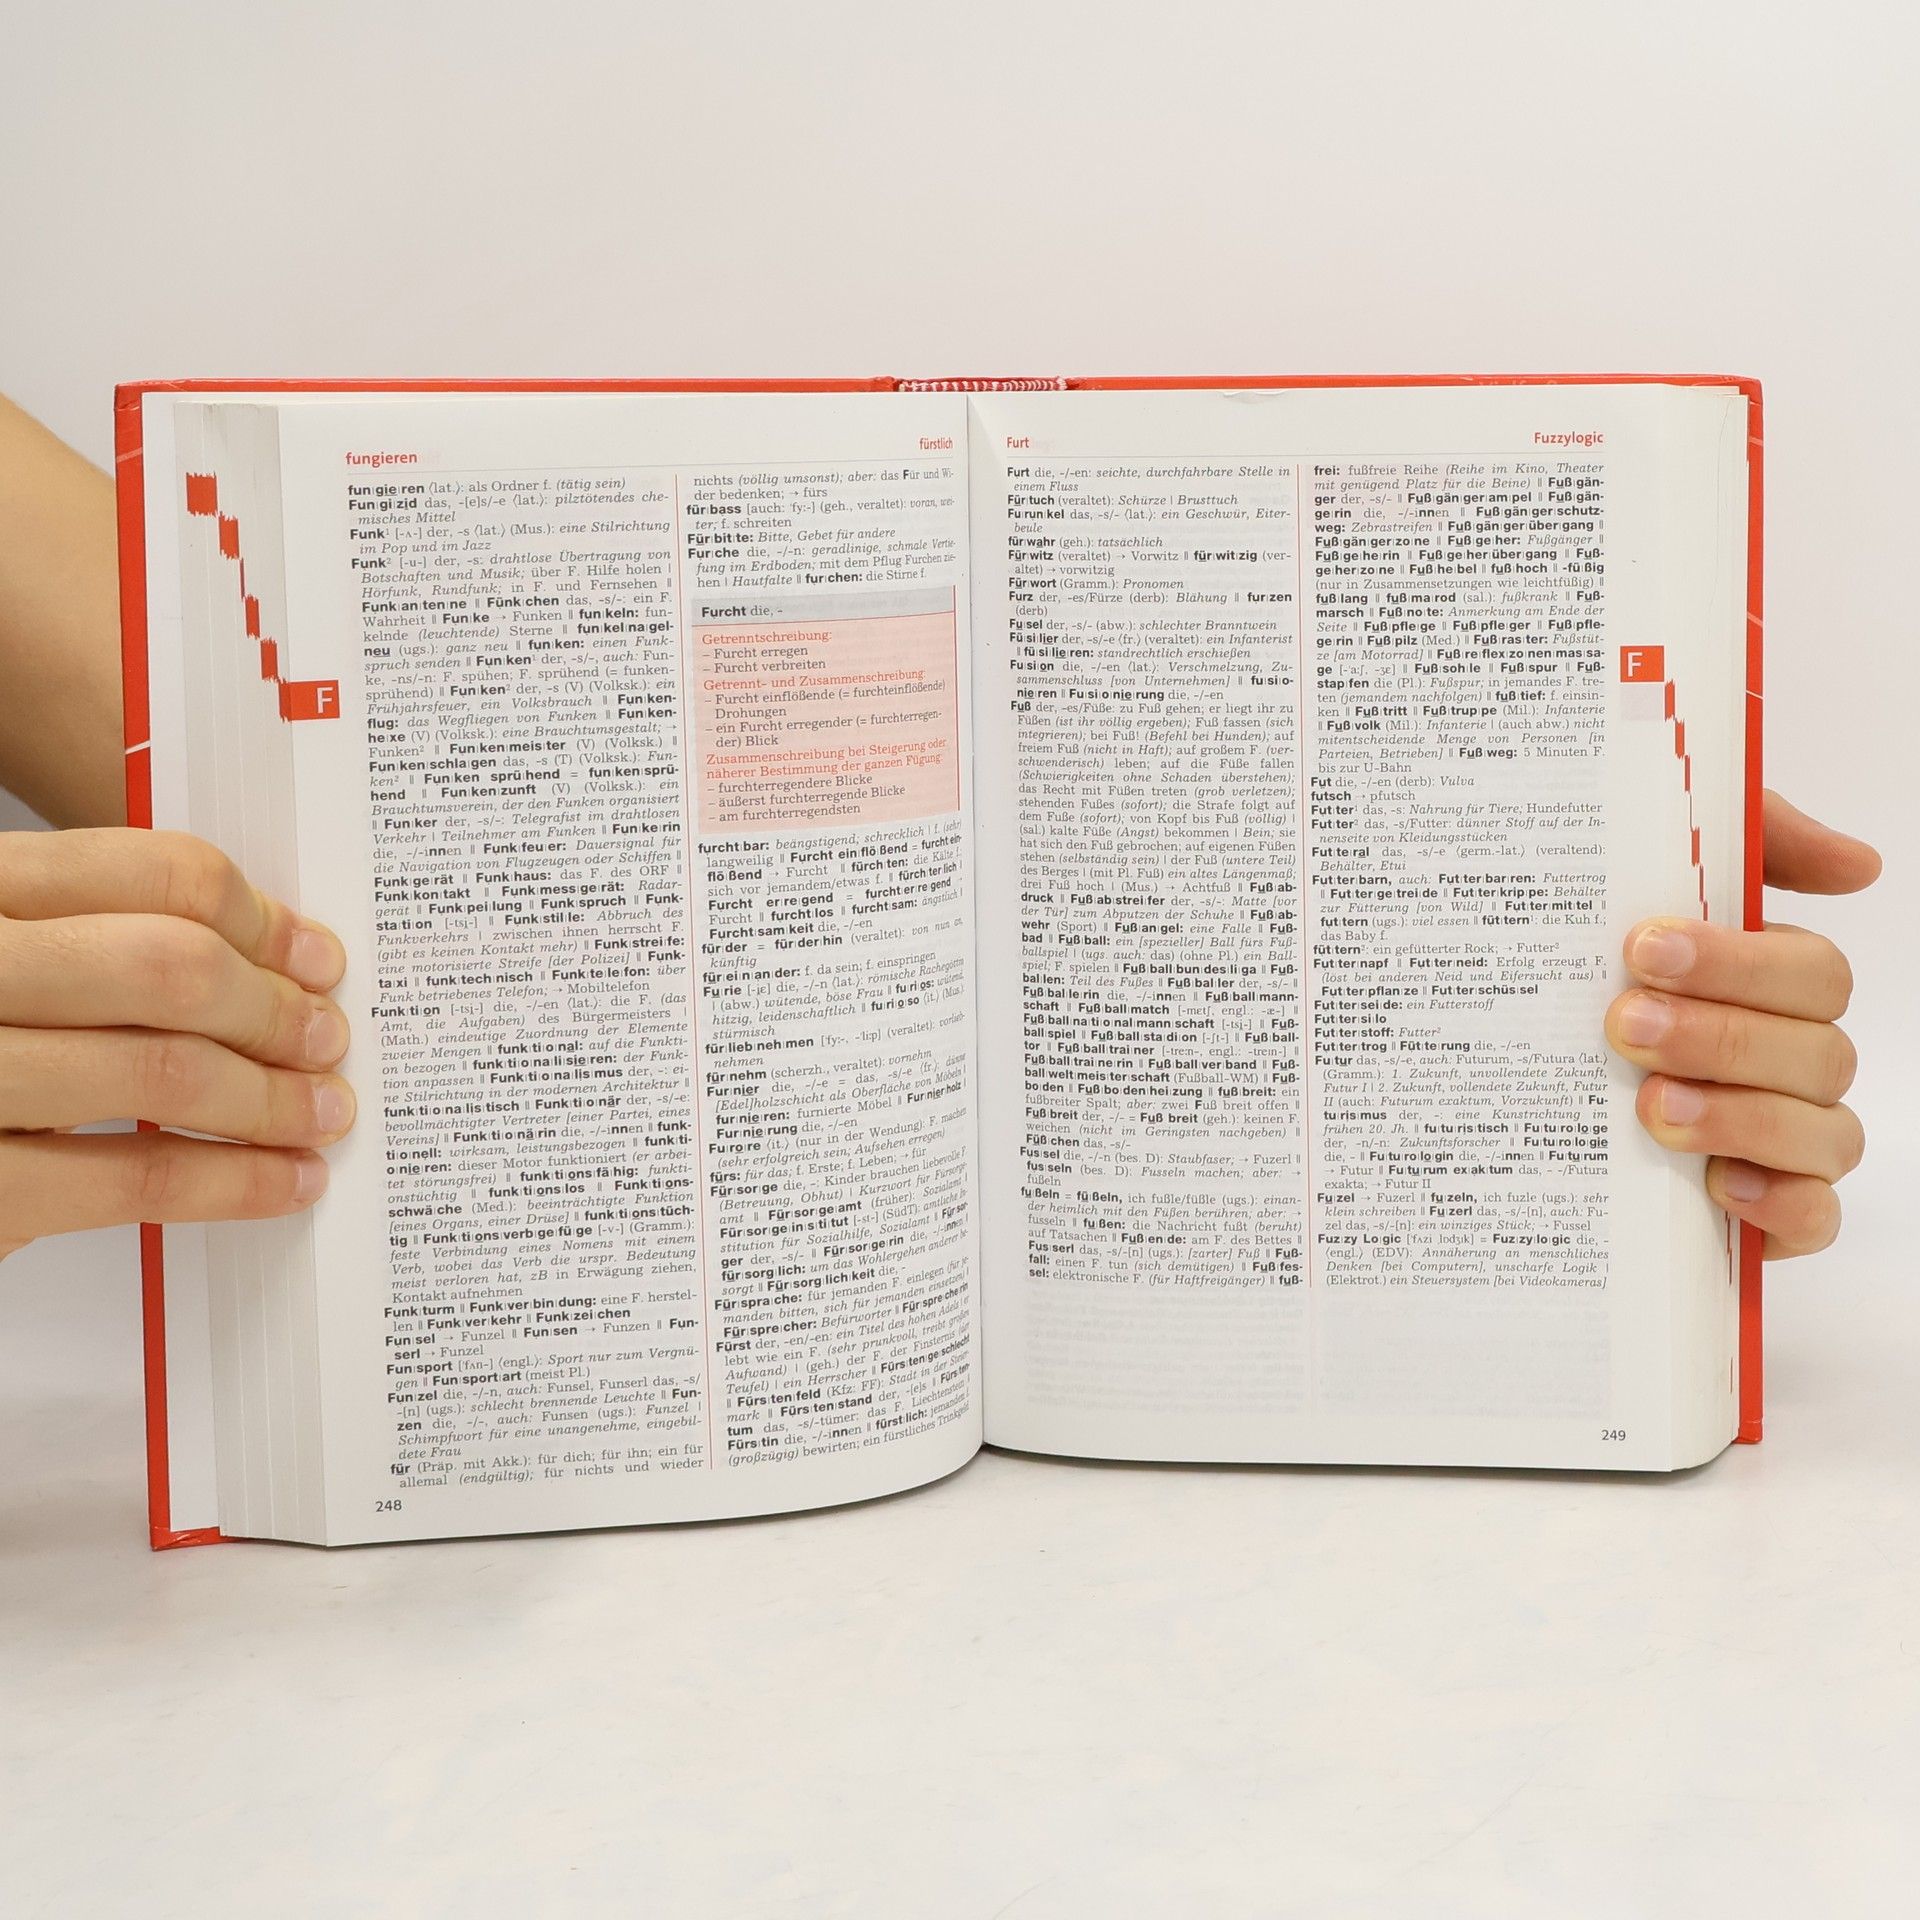 fungieren
fürstlich
fun|gie|ren ⟨lat.⟩: als Ordner f. (tätig sein)
Fun|gi|zid das, -[e]s/-e ⟨lat.⟩: pilztötendes che-
misches Mittel
Funk¹ [-ʌ-] der, -s ⟨lat.⟩ (Mus.): eine Stilrichtung
im Pop und im Jazz
Funk² [-u-] der, -s: drahtlose Übertragung von
Botschaften und Musik; über F. Hilfe holen |
Hörfunk, Rundfunk; in F. und Fernsehen ||
Funk|an|ten|ne || Fünk|chen das, -s/-: ein F.
Wahrheit || Fun|ke → Funken || fun|keln: fun-
kelnde (leuchtende) Sterne || fun|kel|na|gel-
neu (ugs.): ganz neu || fun|ken: einen Funk-
spruch senden || Fun|ken¹ der, -s/-, auch: Fun-
ke, -ns/-n: F. spühen; F. sprühend (= funken-
sprühend) || Fun|ken² der, -s (V) (Volksk.): ein
Frühjahrsfeuer, ein Volksbrauch || Fun|ken-
flug: das Wegfliegen von Funken || Fun|ken-
he|xe (V) (Volksk.): eine Brauchtumsgestalt; →
Funken² || Fun|ken|meis|ter (V) (Volksk.) ||
Fun|ken|schla|gen das, -s (T) (Volksk.): Fun-
ken² || Fun|ken sprü|hend = fun|ken|sprü-
hend || Fun|ken|zunft (V) (Volksk.): ein
Brauchtumsverein, der den Funken organisiert
|| Fun|ker der, -s/-: Telegrafist im drahtlosen
Verkehr | Teilnehmer am Funken || Fun|ke|rin
die, -/-innen || Funk|feu|er: Dauersignal für
die Navigation von Flugzeugen oder Schiffen ||
Funk|ge|rät || Funk|haus: das F. des ORF ||
Funk|kon|takt || Funk|mess|ge|rät: Radar-
gerät || Funk|pei|lung || Funk|spruch || Funk-
sta|ti|on [-tsi̯-] || Funk|stil|le: Abbruch des
Funkverkehrs | zwischen ihnen herrscht F.
(gibt es keinen Kontakt mehr) || Funk|strei|fe:
eine motorisierte Streife [der Polizei] || Funk-
ta|xi || funk|tech|nisch || Funk|te|le|fon: über
Funk betriebenes Telefon; → Mobiltelefon
Funk|ti|on [-tsi̯-] die, -/-en ⟨lat.⟩: die F. (das
Amt, die Aufgaben) des Bürgermeisters |
(Math.) eindeutige Zuordnung der Elemente
zweier Mengen || funk|ti|o|nal: auf die Funkti-
on bezogen || funk|ti|o|na|li|sie|ren: der Funk-
tion anpassen || Funk|ti|o|na|lis|mus der, -: ei-
ne Stilrichtung in der modernen Architektur ||
funk|ti|o|na|lis|tisch || Funk|ti|o|när der, -s/-e:
bevollmächtigter Vertreter [einer Partei, eines
Vereins] || Funk|ti|o|nä|rin die, -/-innen || funk-
ti|o|nell: wirksam, leistungsbezogen || funk|ti-
o|nie|ren: dieser Motor funktioniert (er arbei-
tet störungsfrei) || funk|ti|ons|fä|hig: funkti-
onstüchtig || funk|ti|ons|los || Funk|ti|ons-
schwä|che (Med.): beeinträchtigte Funktion
[eines Organs, einer Drüse] || funk|ti|ons|tüch-
tig || Funk|ti|ons|verb|ge|fü|ge [-v-] (Gramm.):
feste Verbindung eines Nomens mit einem
Verb, wobei das Verb die urspr. Bedeutung
meist verloren hat, zB in Erwägung ziehen,
Kontakt aufnehmen
Funk|turm || Funk|ver|bin|dung: eine F. herstel-
len || Funk|ver|kehr || Funk|zei|chen
Fun|sel → Funzel || Fun|sen → Funzen || Fun-
serl → Funzel
Fun|sport ['fʌn-] ⟨engl.⟩: Sport nur zum Vergnü-
gen || Fun|sport|art (meist Pl.)
Fun|zel die, -/-n, auch: Funsel, Funserl das, -s/
-[n] (ugs.): schlecht brennende Leuchte || Fun-
zen die, -/-, auch: Funsen (ugs.): Funzel |
Schimpfwort für eine unangenehme, eingebil-
dete Frau
für (Präp. mit Akk.): für dich; für ihn; ein für
allemal (endgültig); für nichts und wieder
nichts (völlig umsonst); aber: das Für und Wi-
der bedenken; → fürs
für|bass [auch: 'fy:-] (geh., veraltet): voran, wei-
ter; f. schreiten
Für|bit|te: Bitte, Gebet für andere
Fur|che die, -/-n: geradlinige, schmale Vertie-
fung im Erdboden; mit dem Pflug Furchen zie-
hen | Hautfalte || fur|chen: die Stirne f.
Furcht die, -
Getrenntschreibung:
– Furcht erregen
– Furcht verbreiten
Getrennt- und Zusammenschreibung:
– Furcht einflößende (= furchteinflößende)
Drohungen
– ein Furcht erregender (= furchterregen-
der) Blick
Zusammenschreibung bei Steigerung oder
näherer Bestimmung der ganzen Fügung:
– furchterregendere Blicke
– äußerst furchterregende Blicke
– am furchterregendsten
furcht|bar: beängstigend; schrecklich | f. (sehr)
langweilig || Furcht ein|flö|ßend = furcht|ein-
flö|ßend → Furcht || fürch|ten: die Kälte f.;
sich vor jemandem/etwas f. || fürch|ter|lich ||
Furcht er|re|gend = furcht|er|re|gend →
Furcht || furcht|los || furcht|sam: ängstlich ||
Furcht|sam|keit die, -/-en
für|der = für|der|hin (veraltet): von nun an,
künftig
für|ein|an|der: f. da sein; f. einspringen
Fu|rie [-i̯ɛ] die, -/-n ⟨lat.⟩: römische Rachegöttin
| (abw.) wütende, böse Frau || fu|ri|os: wütend,
hitzig, leidenschaftlich || fu|ri|o|so ⟨it.⟩ (Mus.):
stürmisch
für|lieb|neh|men ['fy:-, -'li:p] (veraltet): vorlieb-
nehmen
für|nehm (scherzh., veraltet): vornehm
Fur|nier die, -/-e = das, -s/-e ⟨fr.⟩: dünne
[Edel]holzschicht als Oberfläche von Möbeln ||
fur|nie|ren: furnierte Möbel || Fur|nier|holz ||
Fur|nie|rung die, -/-en
Fu|ro|re ⟨it.⟩ (nur in der Wendung): F. machen
(sehr erfolgreich sein; Aufsehen erregen)
fürs: für das; f. Erste; f. Leben; → für
Für|sor|ge die, -: Kinder brauchen liebevolle F.
(Betreuung, Obhut) | Kurzwort für Fürsorge-
amt || Für|sor|ge|amt (früher): Sozialamt ||
Für|sor|ge|in|sti|tut [-st-] (SüdT): amtliche In-
stitution für Sozialhilfe, Sozialamt || Für|sor-
ger der, -s/- || Für|sor|ge|rin die, -/-innen ||
für|sorg|lich: um das Wohlergehen anderer be-
sorgt || Für|sorg|lich|keit die, -
Für|spra|che: für jemanden F. einlegen (für je-
manden bitten, sich für jemanden einsetzen) ||
Für|spre|cher: Befürworter || Für|spre|che|rin
Fürst der, -en/-en: ein Titel des hohen Adels | er
lebt wie ein F. (sehr prunkvoll, treibt großen
Aufwand) | (geh.) der F. der Finsternis (der
Teufel) | ein Herrscher || Fürs|ten|ge|schlecht
|| Fürs|ten|feld (Kfz: FF): Stadt in der Steier-
mark || Fürs|ten|stand der, -[e]s || Fürs|ten-
tum das, -s/-tümer: das F. Liechtenstein ||
Fürs|tin die, -/-innen || fürst|lich: jemanden f.
(großzügig) bewirten; ein fürstliches Trinkgeld
248
F
Furt
Fuzzylogic
Furt die, -/-en: seichte, durchfahrbare Stelle in
einem Fluss
Für|tuch (veraltet): Schürze | Brusttuch
Fu|run|kel das, -s/- ⟨lat.⟩: ein Geschwür, Eiter-
beule
für|wahr (geh.): tatsächlich
Für|witz (veraltet) → Vorwitz || für|wit|zig (ver-
altet) → vorwitzig
Für|wort (Gramm.): Pronomen
Furz der, -es/Fürze (derb): Blähung || fur|zen
(derb)
Fu|sel der, -s/- (abw.): schlechter Branntwein
Fü|si|lier der, -s/-e ⟨fr.⟩ (veraltet): ein Infanterist
|| fü|si|lie|ren: standrechtlich erschießen
Fu|si|on die, -/-en ⟨lat.⟩: Verschmelzung, Zu-
sammenschluss [von Unternehmen] || fu|si|o-
nie|ren || Fu|si|o|nie|rung die, -/-en
Fuß der, -es/Füße: zu Fuß gehen; er liegt ihr zu
Füßen (ist ihr völlig ergeben); Fuß fassen (sich
integrieren); bei Fuß! (Befehl bei Hunden); auf
freiem Fuß (nicht in Haft); auf großem F. (ver-
schwenderisch) leben; auf die Füße fallen
(Schwierigkeiten ohne Schaden überstehen);
das Recht mit Füßen treten (grob verletzen);
stehenden Fußes (sofort); die Strafe folgt auf
dem Fuße (sofort); von Kopf bis Fuß (völlig) |
(sal.) kalte Füße (Angst) bekommen | Bein; sie
hat sich den Fuß gebrochen; auf eigenen Füßen
stehen (selbständig sein) | der Fuß (untere Teil)
des Berges | (mit Pl. Fuß) ein altes Längenmaß;
drei Fuß hoch | (Mus.) → Achtfuß || Fuß|ab-
druck || Fuß|ab|strei|fer der, -s/-: Matte [vor
der Tür] zum Abputzen der Schuhe || Fuß|ab-
wehr (Sport) || Fuß|an|gel: eine Falle || Fuß-
bad || Fuß|ball: ein [spezieller] Ball fürs Fuß-
ballspiel | (ugs. auch: das) (ohne Pl.) ein Ball-
spiel; F. spielen || Fuß|ball|bun|des|li|ga || Fuß-
bal|len: Teil des Fußes || Fuß|bal|ler der, -s/- ||
Fuß|bal|le|rin die, -/-innen || Fuß|ball|mann-
schaft || Fuß|ball|match [-mɛtʃ, engl.: -æ-] ||
Fuß|ball|na|ti|o|nal|mann|schaft [-tsi̯-] || Fuß-
ball|spiel || Fuß|ball|sta|di|on [-ʃt-] || Fuß|ball-
tor || Fuß|ball|trai|ner [-tre:n-, engl.: -trein-] ||
Fuß|ball|trai|ne|rin || Fuß|ball|ver|band || Fuß-
ball|welt|meis|ter|schaft (Fußball-WM) || Fuß-
bo|den || Fuß|bo|den|hei|zung || fuß|breit: ein
fußbreiter Spalt; aber: zwei Fuß breit offen ||
Fuß|breit der, -/- = Fuß breit (geh.): keinen F.
weichen (nicht im Geringsten nachgeben) ||
Füß|chen das, -s/-
Fus|sel die, -/-n (bes. D): Staubfaser; → Fuzerl ||
fus|seln (bes. D): Fusseln machen; aber: →
fußeln
fu|ßeln = fü|ßeln, ich fußle/füßle (ugs.): einan-
der heimlich mit den Füßen berühren; aber: →
fusseln || fu|ßen: die Nachricht fußt (beruht)
auf Tatsachen || Fuß|en|de: am F. des Bettes ||
Fus|serl das, -s/-[n] (ugs.): [zarter] Fuß || Fuß-
fall: einen F. tun (sich demütigen) || Fuß|fes-
sel: elektronische F. (für Haftfreigänger) || fuß-
frei: fußfreie Reihe (Reihe im Kino, Theater
mit genügend Platz für die Beine) || Fuß|gän-
ger der, -s/- || Fuß|gän|ger|am|pel || Fuß|gän-
ge|rin die, -/-innen || Fuß|gän|ger|schutz-
weg: Zebrastreifen || Fuß|gän|ger|über|gang ||
Fuß|gän|ger|zo|ne || Fuß|ge|her: Fußgänger ||
Fuß|ge|he|rin || Fuß|ge|her|über|gang || Fuß-
ge|her|zo|ne || Fuß|he|bel || fuß|hoch || -fü|ßig
(nur in Zusammensetzungen wie leichtfüßig) ||
fuß|lang || fuß|ma|rod (sal.): fußkrank || Fuß-
marsch || Fuß|no|te: Anmerkung am Ende der
Seite || Fuß|pfle|ge || Fuß|pfle|ger || Fuß|pfle-
ge|rin || Fuß|pilz (Med.) || Fuß|ras|ter: Fußstüt-
ze [am Motorrad] || Fuß|re|flex|zo|nen|mas|sa-
ge [-'a:ʃ, -ʒɛ] || Fuß|soh|le || Fuß|spur || Fuß-
stap|fen die (Pl.): Fußspur; in jemandes F. tre-
ten (jemandem nachfolgen) || fuß|tief: f. einsin-
ken || Fuß|tritt || Fuß|trup|pe (Mil.): Infanterie
|| Fuß|volk (Mil.): Infanterie | (auch abw.) nicht
mitentscheidende Menge von Personen [in
Parteien, Betrieben] || Fuß|weg: 5 Minuten F.
bis zur U-Bahn
Fut die, -/-en (derb): Vulva
futsch → pfutsch
Fut|ter¹ das, -s: Nahrung für Tiere; Hundefutter
Fut|ter² das, -s/Futter: dünner Stoff auf der In-
nenseite von Kleidungsstücken
Fut|te|ral das, -s/-e ⟨germ.-lat.⟩ (veraltend):
Behälter, Etui
Fut|ter|barn, auch: Fut|ter|bar|ren: Futtertrog
|| Fut|ter|ge|trei|de || Fut|ter|krip|pe: Behälter
zur Fütterung [von Wild] || Fut|ter|mit|tel ||
fut|tern (ugs.): viel essen || füt|tern¹: die Kuh f.;
das Baby f.
füt|tern²: ein gefütterter Rock; → Futter²
Fut|ter|napf || Fut|ter|neid: Erfolg erzeugt F.
(löst bei anderen Neid und Eifersucht aus) ||
Fut|ter|pflan|ze || Fut|ter|schüs|sel
Fut|ter|sei|de: ein Futterstoff
Fut|ter|si|lo
Fut|ter|stoff: Futter²
Fut|ter|trog || Füt|te|rung die, -/-en
Fu|tur das, -s/-e, auch: Futurum, -s/Futura ⟨lat.⟩
(Gramm.): 1. Zukunft, unvollendete Zukunft,
Futur I | 2. Zukunft, vollendete Zukunft, Futur
II (auch: Futurum exaktum, Vorzukunft) || Fu-
tu|ris|mus der, -: eine Kunstrichtung im
frühen 20. Jh. || fu|tu|ris|tisch || Fu|tu|ro|lo|ge
der, -n/-n: Zukunftsforscher || Fu|tu|ro|lo|gie
die, - || Fu|tu|ro|lo|gin die, -/-innen || Fu|tu|rum
→ Futur || Fu|tu|rum ex|ak|tum das, - -/Futura
exakta; → Futur II
Fu|zel → Fuzerl || fu|zeln, ich fuzle (ugs.): sehr
klein schreiben || Fu|zerl das, -s/-[n], auch: Fu-
zel das, -s/-[n]: ein winziges Stück; → Fussel
Fuz|zy Lo|gic ['fʌzi ˌlodʒik] = Fuz|zy|lo|gic die, -
⟨engl.⟩ (EDV): Annäherung an menschliches
Denken [bei Computern], unscharfe Logik |
(Elektrot.) ein Steuersystem [bei Videokameras]
F
249